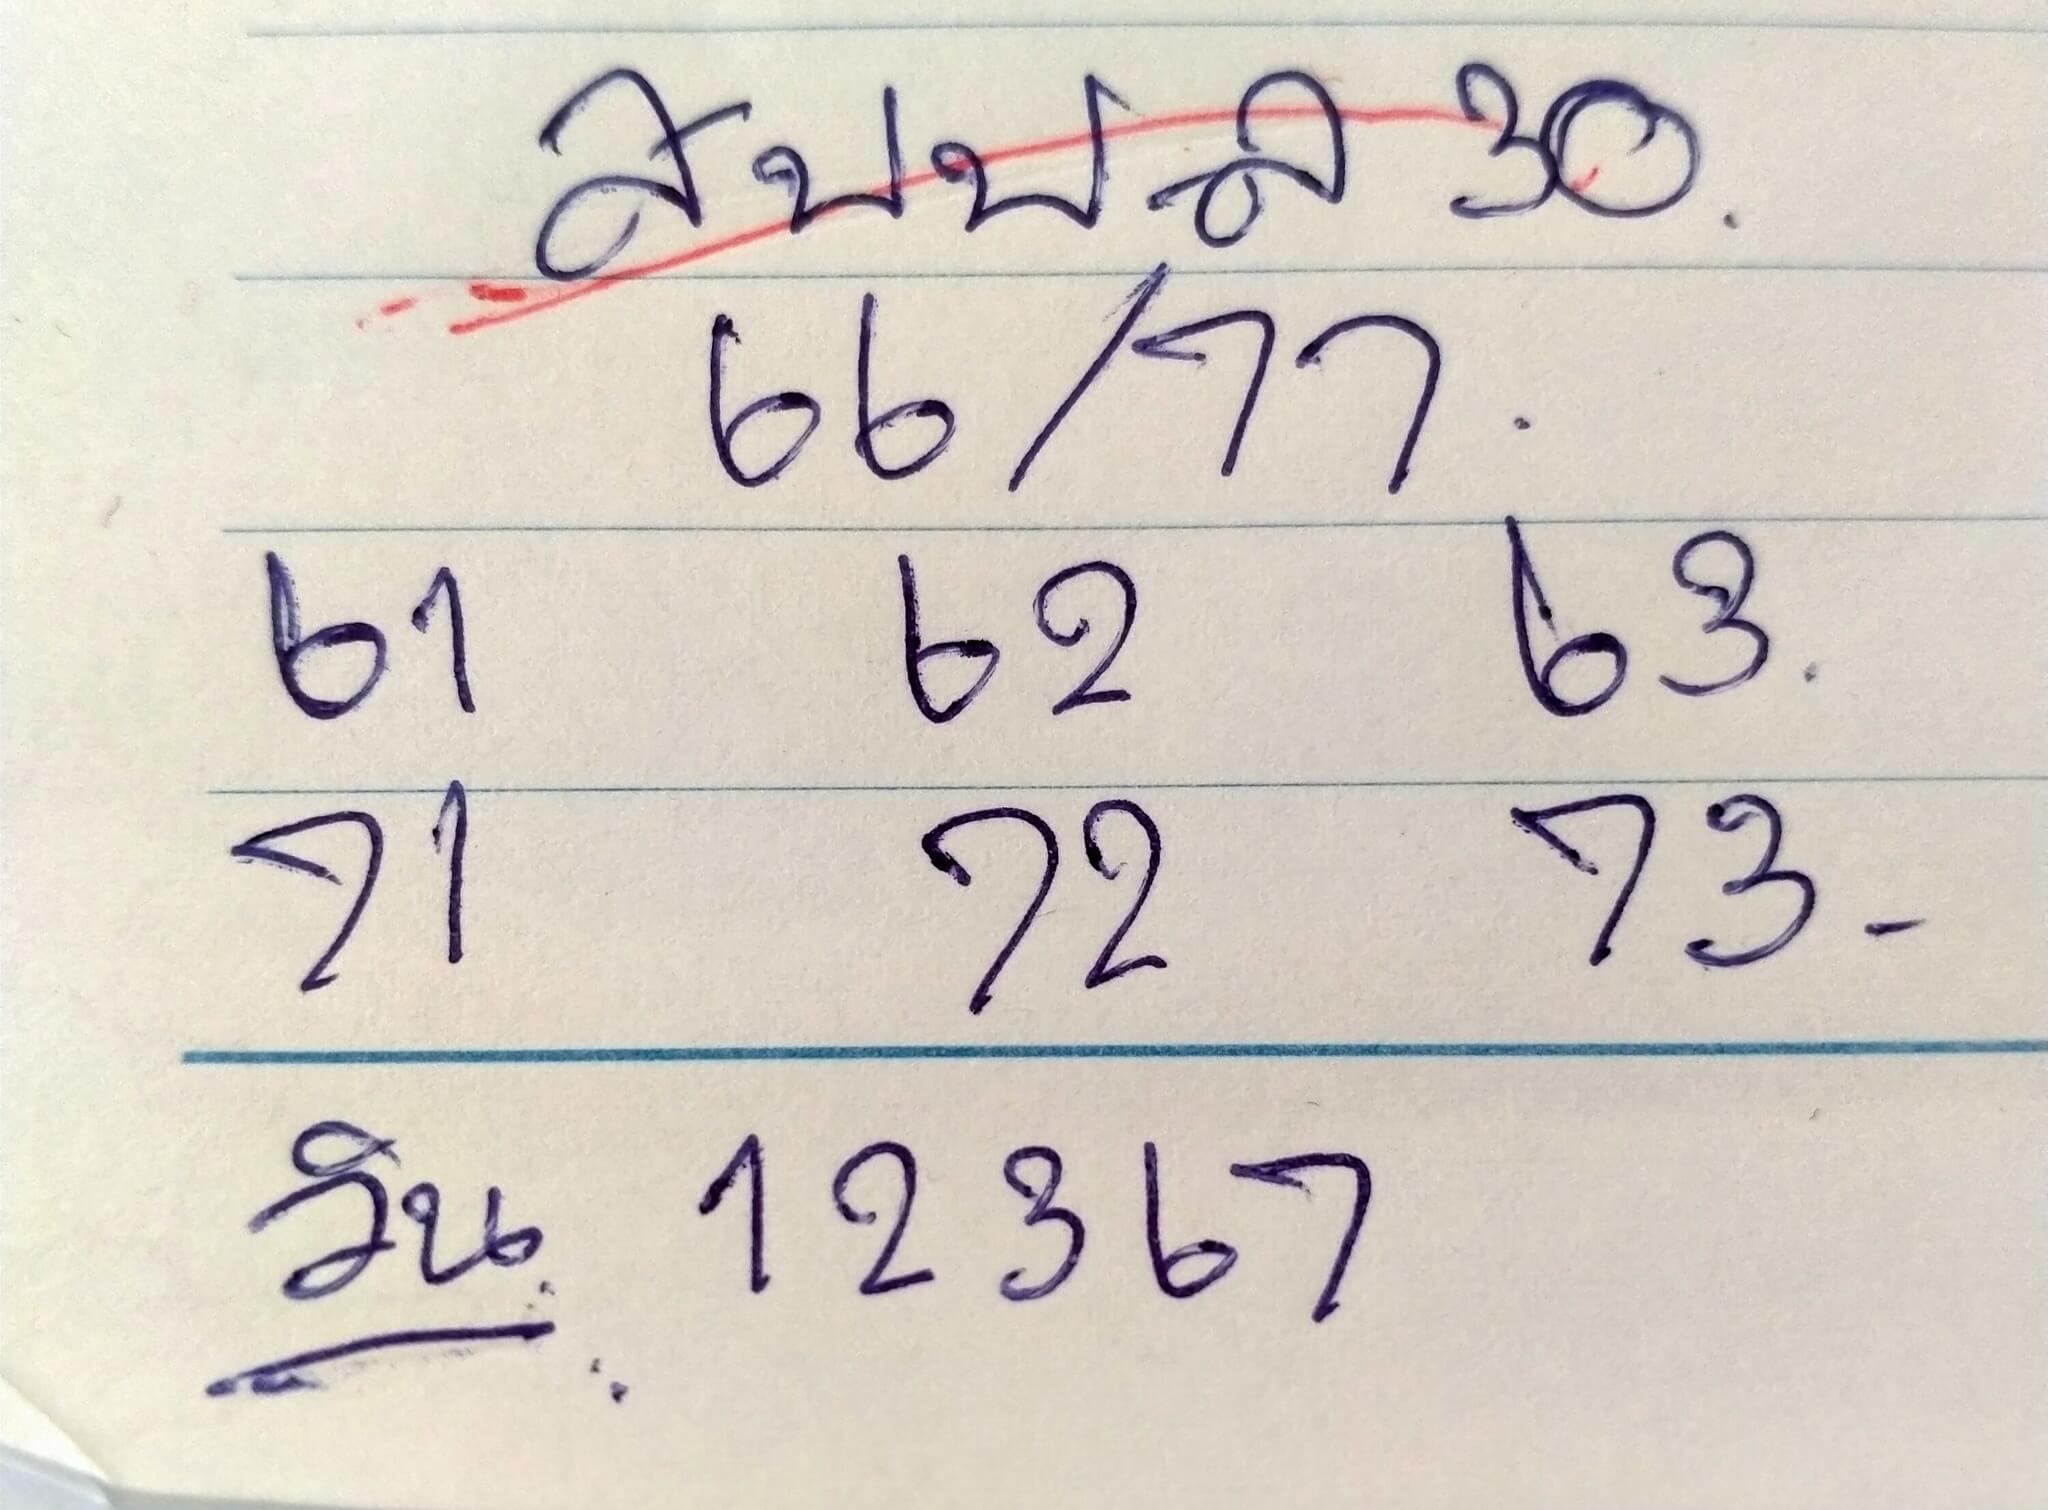 สปปล 30.
66/77.
61 62 63.
71 72 73-
วิน. 12367